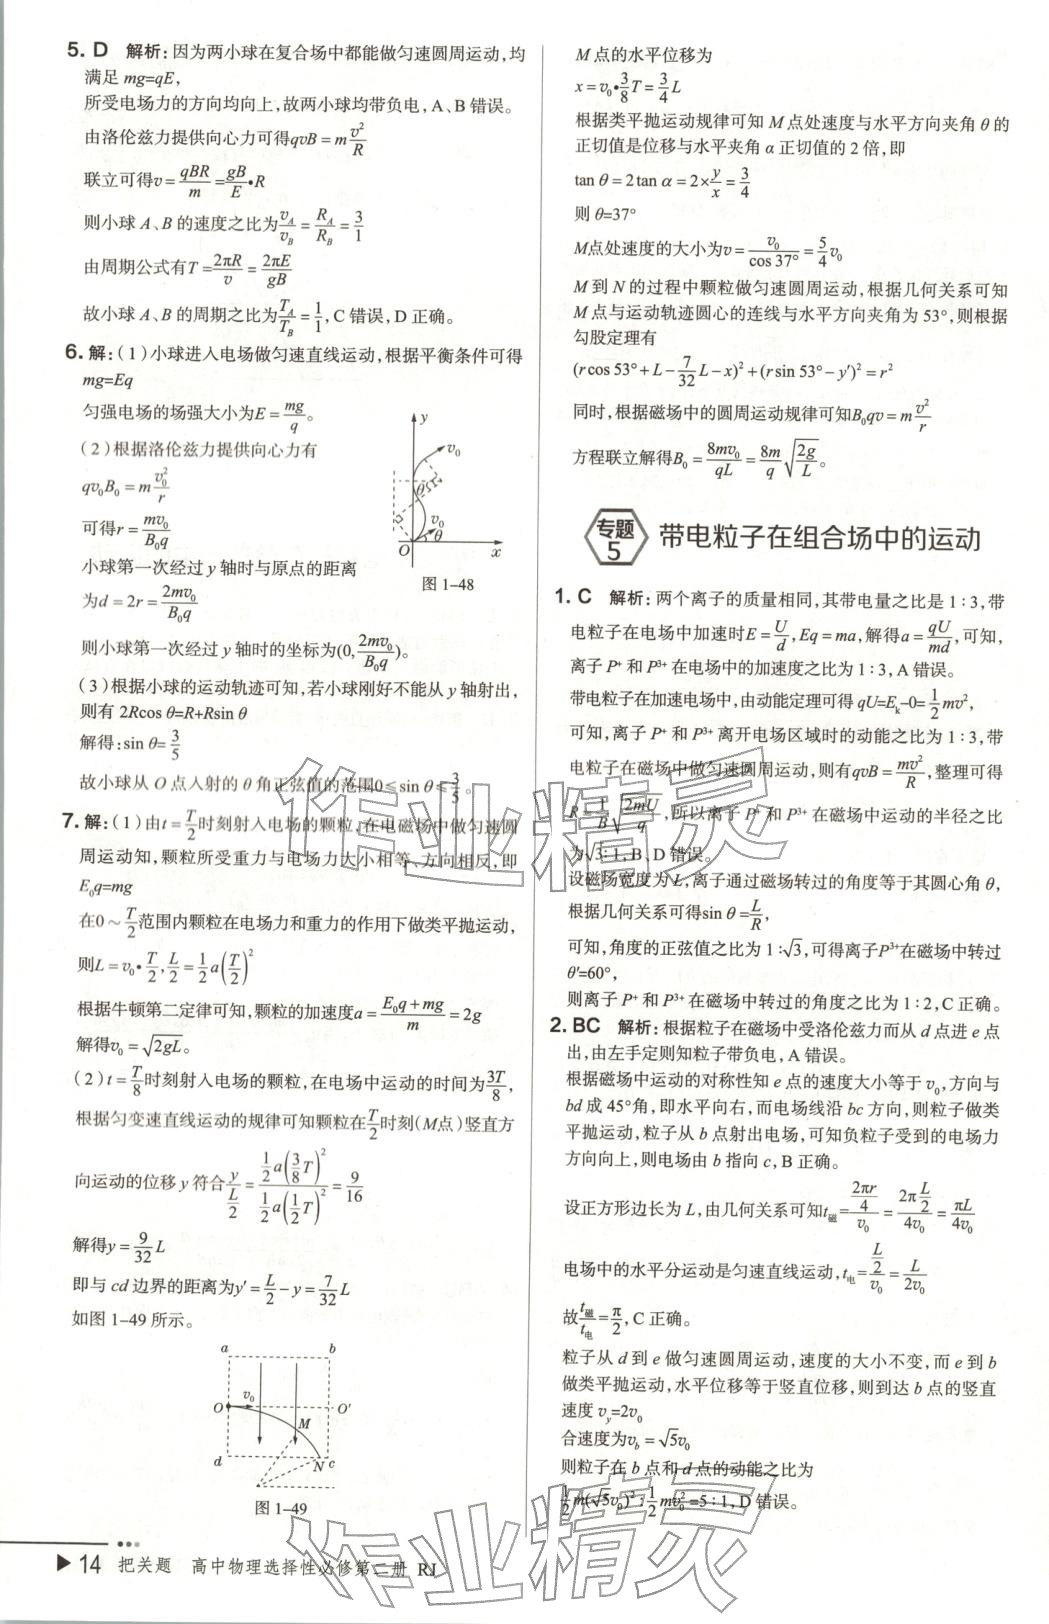 5. D 解析:因为两小球在复合场中都能做匀速圆周运动,均
满足 mg=qE,
所受电场力的方向均向上,故两小球均带负电,A、B 错误。
由洛伦兹力提供向心力可得qvB=m\frac{v^2}{R}
联立可得v=\frac{qBR}{m}=\frac{gB}{E}•R
则小球 A、B 的速度之比为\frac{v_A}{v_B}=\frac{R_A}{R_B}=\frac{3}{1}
由周期公式有T=\frac{2πR}{v}=\frac{2πE}{gB}
故小球 A、B 的周期之比为\frac{T_A}{T_B}=\frac{1}{1},C 错误,D 正确。
6. 解:(1)小球进入电场做匀速直线运动,根据平衡条件可得
mg=Eq
匀强电场的场强大小为E=\frac{mg}{q}。
(2)根据洛伦兹力提供向心力有
qv_0B_0=m\frac{v_0^2}{r}
可得r=\frac{mv_0}{B_0q}
小球第一次经过 y 轴时与原点的距离
为d=2r=\frac{2mv_0}{B_0q}
y
v_0
θ
v_0
θ
O
x
图 1-48
则小球第一次经过 y 轴时的坐标为(0,\frac{2mv_0}{B_0q})。
(3)根据小球的运动轨迹可知,若小球刚好不能从 y 轴射出,
则有 2Rcos θ=R+Rsin θ
解得:sin θ=\frac{3}{5}
故小球从 O 点入射的 θ 角正弦值的范围0≤sin θ≤\frac{3}{5}。
7. 解:(1)由t=\frac{T}{2}时刻射入电场的颗粒,在电磁场中做匀速圆
周运动知,颗粒所受重力与电场力大小相等、方向相反,即
E_0q=mg
在0~\frac{T}{2}范围内颗粒在电场力和重力的作用下做类平抛运动,
则L=v_0•\frac{T}{2},\frac{L}{2}=\frac{1}{2}a(\frac{T}{2})^2
根据牛顿第二定律可知,颗粒的加速度a=\frac{E_0q+mg}{m}=2g
解得v_0=\sqrt{2gL}。
(2)t=\frac{T}{8}时刻射入电场的颗粒,在电场中运动的时间为\frac{3T}{8},
根据匀变速直线运动的规律可知颗粒在\frac{T}{2}时刻(M点)竖直方
向运动的位移 y 符合\frac{y}{\frac{L}{2}}=\frac{\frac{1}{2}a(\frac{3}{8}T)^2}{\frac{1}{2}a(\frac{1}{2}T)^2}=\frac{9}{16}
解得y=\frac{9}{32}L
即与 cd 边界的距离为y'=\frac{L}{2}-y=\frac{7}{32}L
如图 1-49 所示。
a
b
v_0
O
O'
M
d
N
c
图 1-49
M 点的水平位移为
x=v_0•\frac{3}{8}T=\frac{3}{4}L
根据类平抛运动规律可知 M 点处速度与水平方向夹角 θ 的
正切值是位移与水平夹角 α 正切值的 2 倍,即
tan θ=2tan α=2×\frac{y}{x}=\frac{3}{4}
则 θ=37°
M点处速度的大小为v=\frac{v_0}{cos 37°}=\frac{5}{4}v_0
M 到 N 的过程中颗粒做匀速圆周运动,根据几何关系可知
M 点与运动轨迹圆心的连线与水平方向夹角为 53°,则根据
勾股定理有
(rcos 53°+L-\frac{7}{32}L-x)^2+(rsin 53°-y')^2=r^2
同时,根据磁场中的圆周运动规律可知B_0qv=m\frac{v^2}{r}
方程联立解得B_0=\frac{8mv_0}{qL}=\frac{8m}{q}\sqrt{\frac{2g}{L}}。
专题5 带电粒子在组合场中的运动
1. C 解析:两个离子的质量相同,其带电量之比是 1∶3,带
电粒子在电场中加速时E=\frac{U}{d},Eq=ma,解得a=\frac{qU}{md},可知,
离子 P^+ 和 P^{3+} 在电场中的加速度之比为 1∶3,A 错误。
带电粒子在加速电场中,由动能定理可得 qU=E_k-0=\frac{1}{2}mv^2,
可知,离子 P^+ 和 P^{3+} 离开电场区域时的动能之比为 1∶3,带
电粒子在磁场中做匀速圆周运动,则有qvB=\frac{mv^2}{R},整理可得
R=\frac{1}{B}\sqrt{\frac{2mU}{q}},所以离子 P^+ 和 P^{3+} 在磁场中运动的半径之比
为\sqrt{3}∶1,B、D 错误。
设磁场宽度为 L,离子通过磁场转过的角度等于其圆心角 θ,
根据几何关系可得sin θ=\frac{L}{R},
可知,角度的正弦值之比为 1∶\sqrt{3},可得离子P^{3+}在磁场中转过
θ'=60°,
则离子 P^+ 和 P^{3+} 在磁场中转过的角度之比为 1∶2,C 正确。
2. BC 解析:根据粒子在磁场中受洛伦兹力而从 d 点进 e 点
出,由左手定则知粒子带负电,A 错误。
根据磁场中运动的对称性知 e 点的速度大小等于 v_0,方向与
bd 成 45°角,即水平向右,而电场线沿 bc 方向,则粒子做类
平抛运动,粒子从 b 点射出电场,可知负粒子受到的电场力
方向向上,则电场由 b 指向 c,B 正确。
设正方形边长为 L,由几何关系可知t_磁=\frac{\frac{2πr}{4}}{v_0}=\frac{2π\frac{L}{2}}{4v_0}=\frac{πL}{4v_0}
电场中的水平分运动是匀速直线运动,t_电=\frac{\frac{L}{2}}{v_0}=\frac{L}{2v_0}
故\frac{t_磁}{t_电}=\frac{π}{2},C 正确。
粒子从 d 到 e 做匀速圆周运动,速度的大小不变,而 e 到 b
做类平抛运动,水平位移等于竖直位移,则到达 b 点的竖直
速度 v_y=2v_0
合速度为v_b=\sqrt{5}v_0
则粒子在 b 点和 d 点的动能之比为
\frac{1}{2}m(\sqrt{5}v_0)^2∶\frac{1}{2}mv_0^2=5∶1,D 错误。
作业精灵
作业精灵
14 把关题 高中物理选择性必修第二册 RJ